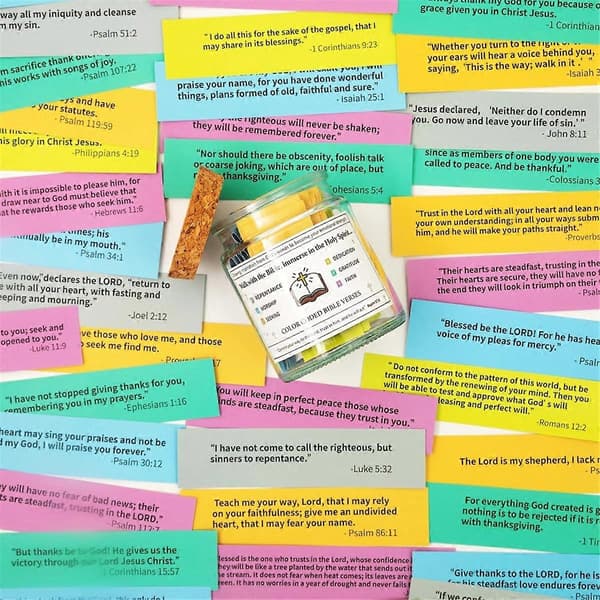 way all my iniquity and cleanse
m my sin.
-Psalm 51:2
"I do all this for the sake of the gospel, that I
may share in its blessings."
-1 Corinthians 9:23
always thank my God for you because of
grace given you in Christ Jesus.
-1 Corinthian
m sacrifice thank
his works with songs of joy.
-Psalm 107:22
praise your name, for you have done wonderful
things, plans formed of old, faithful and sure."
- Isaiah 25:1
"Whether you turn to the right or
your ears will hear a voice behind you,
saying, 'This is the way; walk in it.' "
-Isaiah 3
ys and have
your statutes.
- Psalm 119:59
righteous will never be shaken;
they will be remembered forever."
"Jesus declared, 'Neither do I condemn
you. Go now and leave your life of sin.' "
- John 8:11
his glory in Christ Jesus.
-Philippians 4:19
"Nor should there be obscenity, foolish talk
or coarse joking, which are out of place, but
thanksgiving."
phesians 5:4
since as members of one body you were
called to peace. And be thankful."
-Colossians 3
ith it is impossible to please him, for
draw near to God must believe that
at he rewards those who seek him."
- Hebrews 11:6
"Trust in the Lord with all your heart and lean n
your own understanding; in all your ways subm
him, and he will make your paths straight."
-Proverbs
times; his
nually be in my mouth."
- Psalm 34:1
Walk with the Bible, immerse in the Holy Spirit...
REPENTANCE
WORSHIP
SEEKING
DEDICATION
GRATITUDE
FAITH
COLOR CODED BIBLE VERSES
"Their hearts are steadfast, trusting in the
Their hearts are secure, they will have no f
the end they will look in triumph on their
-Psalm
Even now," declares the LORD, "return to
e with all your heart, with fasting and
eeping and mourning."
-Joel 2:12
"Blessed be the LORD! For he has hea
voice of my pleas for mercy."
- Psalm
to you; seek and
opened to you."
-Luke 11:9
ve those who love me, and those
seek me find me.
"Do not conform to the pattern of this world, but be
transformed by the renewing of your mind. Then you
will be able to test and approve what God's will
pleasing and perfect will."
-Romans 12:2
"I have not stopped giving thanks for you,
remembering you in my prayers."
-Ephesians 1:16
You will keep in perfect peace those whose
minds are steadfast, because they trust in you."
heart may sing your praises and not be
d my God, I will praise you forever."
-Psalm 30:12
"I have not come to call the righteous, but
sinners to repentance."
-Luke 5:32
The Lord is my shepherd, I lack n
- Psalm
ey will have no fear of bad news; their
ts are steadfast, trusting in the LORD,"
-Psalm 112:7
Teach me your way, Lord, that I may rely
on your faithfulness; give me an undivided
heart, that I may fear your name.
- Psalm 86:11
For everything God created is g
nothing is to be rejected if it is r
with thanksgiving.
-1 Tim
"But thanks be to God! He gives us the
victory through our Lord Jesus Christ."
1 Corinthians 15:57
Blessed is the one who trusts in the Lord, whose confidence
ey will be like a tree planted by the water that sends out it
the stream. It does not fear when heat comes; its leaves are
n. It has no worries in a year of drought and never fails
"Give thanks to the LORD, for he is
his steadfast love endures forever
"If we confess